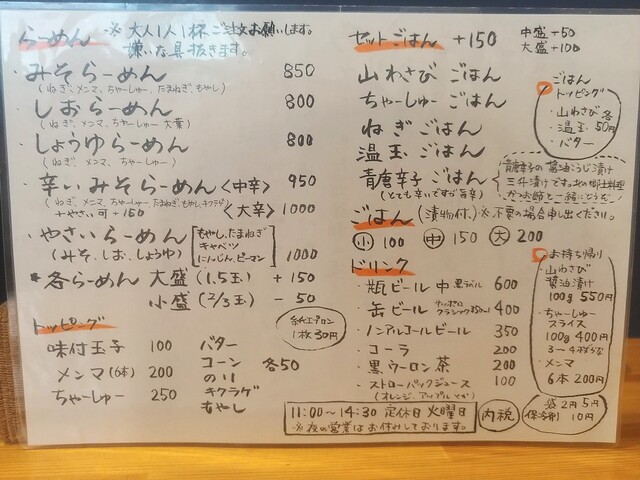 らーめん ※大人1人1杯ご注文お願いします。
嫌いな具抜きます。
・みそらーめん 850
(ねぎ、メンマ、ちゃーしゅー、たまねぎ、もやし)
・しおらーめん 800
(ねぎ、メンマ、ちゃーしゅー 大葉)
・しょうゆらーめん 800
(ねぎ、メンマ、ちゃーしゅー)
・辛いみそらーめん〈中辛〉 950
(ねぎ、メンマ、ちゃーしゅー、たまねぎ、もやし、キクラゲ)
+やさい可+150 〈大辛〉 1000
・やさいらーめん
(みそ、しお、しょうゆ)
もやし、たまねぎ
キャベツ
にんじん、ピーマン
1000
各らーめん 大盛(1.5玉) +150
小盛(2/3玉) -50
トッピング
味付玉子 100
メンマ(6本) 200
ちゃーしゅー 250
バター
コーン
のり
キクラゲ
もやし
各50
紙エプロン
1枚30円
セットごはん +150
中盛+50
大盛+100
山わさびごはん
ちゃーしゅーごはん
ねぎごはん
温玉ごはん
青唐辛子ごはん
(とても辛いですが毎辛)
ごはん
トッピング
・山わさび
・温玉
・バター
各50円
青唐辛子の醤油こうじ漬け
三升漬けです。北の郷土料理
だいぶ飯と一緒にどうぞ
ごはん(漬物付.)※不要の場合申し出ください。
小 100 中 150 大 200
ドリンク
・瓶ビール 中 黒ラベル 600
・缶ビール サッポロクラシック350ml 400
・ノンアルコールビール 350
・コーラ 200
・黒ウーロン茶 200
・ストローパックジュース 100
(オレンジ、アップルとか)
お持ち帰り
・山わさび
醤油漬け
100g 550円
・ちゃーしゅー
スライス
100g 400円
3〜4枚くらい
・メンマ
6本200円
袋2円5円
保冷剤10円
11:00〜14:30 定休日 火曜日
※夜の営業はお休みしております。
内税